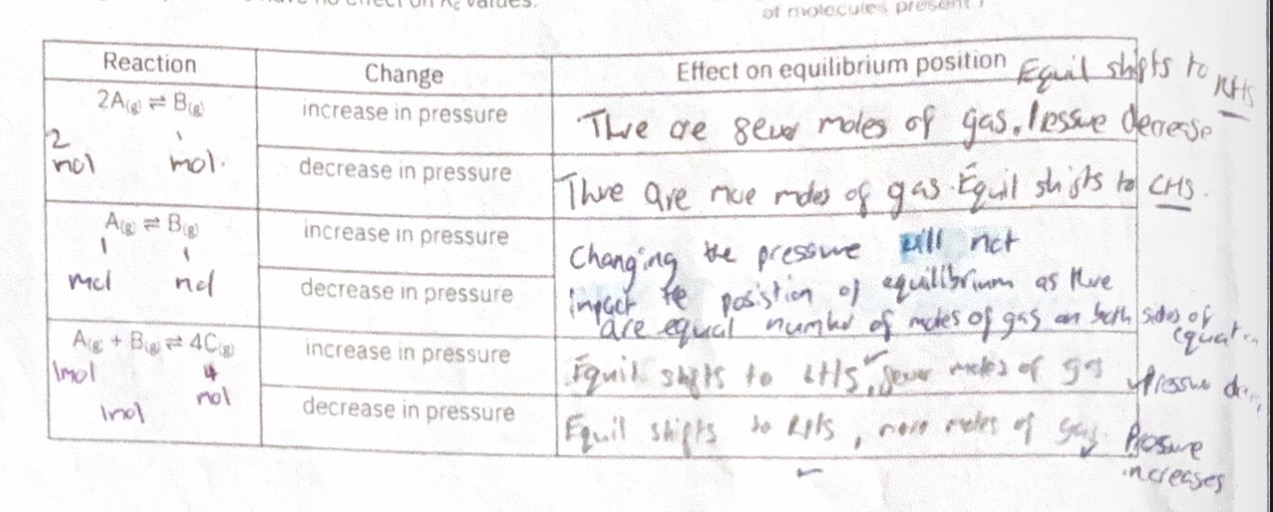 of molecules present)
Reaction Change Effect on equilibrium position Equil shifts to RHS
2A(g) ⇌ B(g) increase in pressure There are fewer moles of gas. Pressure decrease
2 mol 1 mol. decrease in pressure There are more moles of gas. Equil shifts to LHS.
A(g) ⇌ B(g) increase in pressure Changing the pressure will not
1 mol 1 mol decrease in pressure impact the posistion of equilibrium as there
are equal number of moles of gas on both sides of equation
A(g) + B(g) ⇌ 4C(g) increase in pressure Equil shifts to LHS, fewer moles of gas Pressure
1mol 1mol 4 mol decrease in pressure Equil shifts to RHS, more moles of gas Pressure
increases